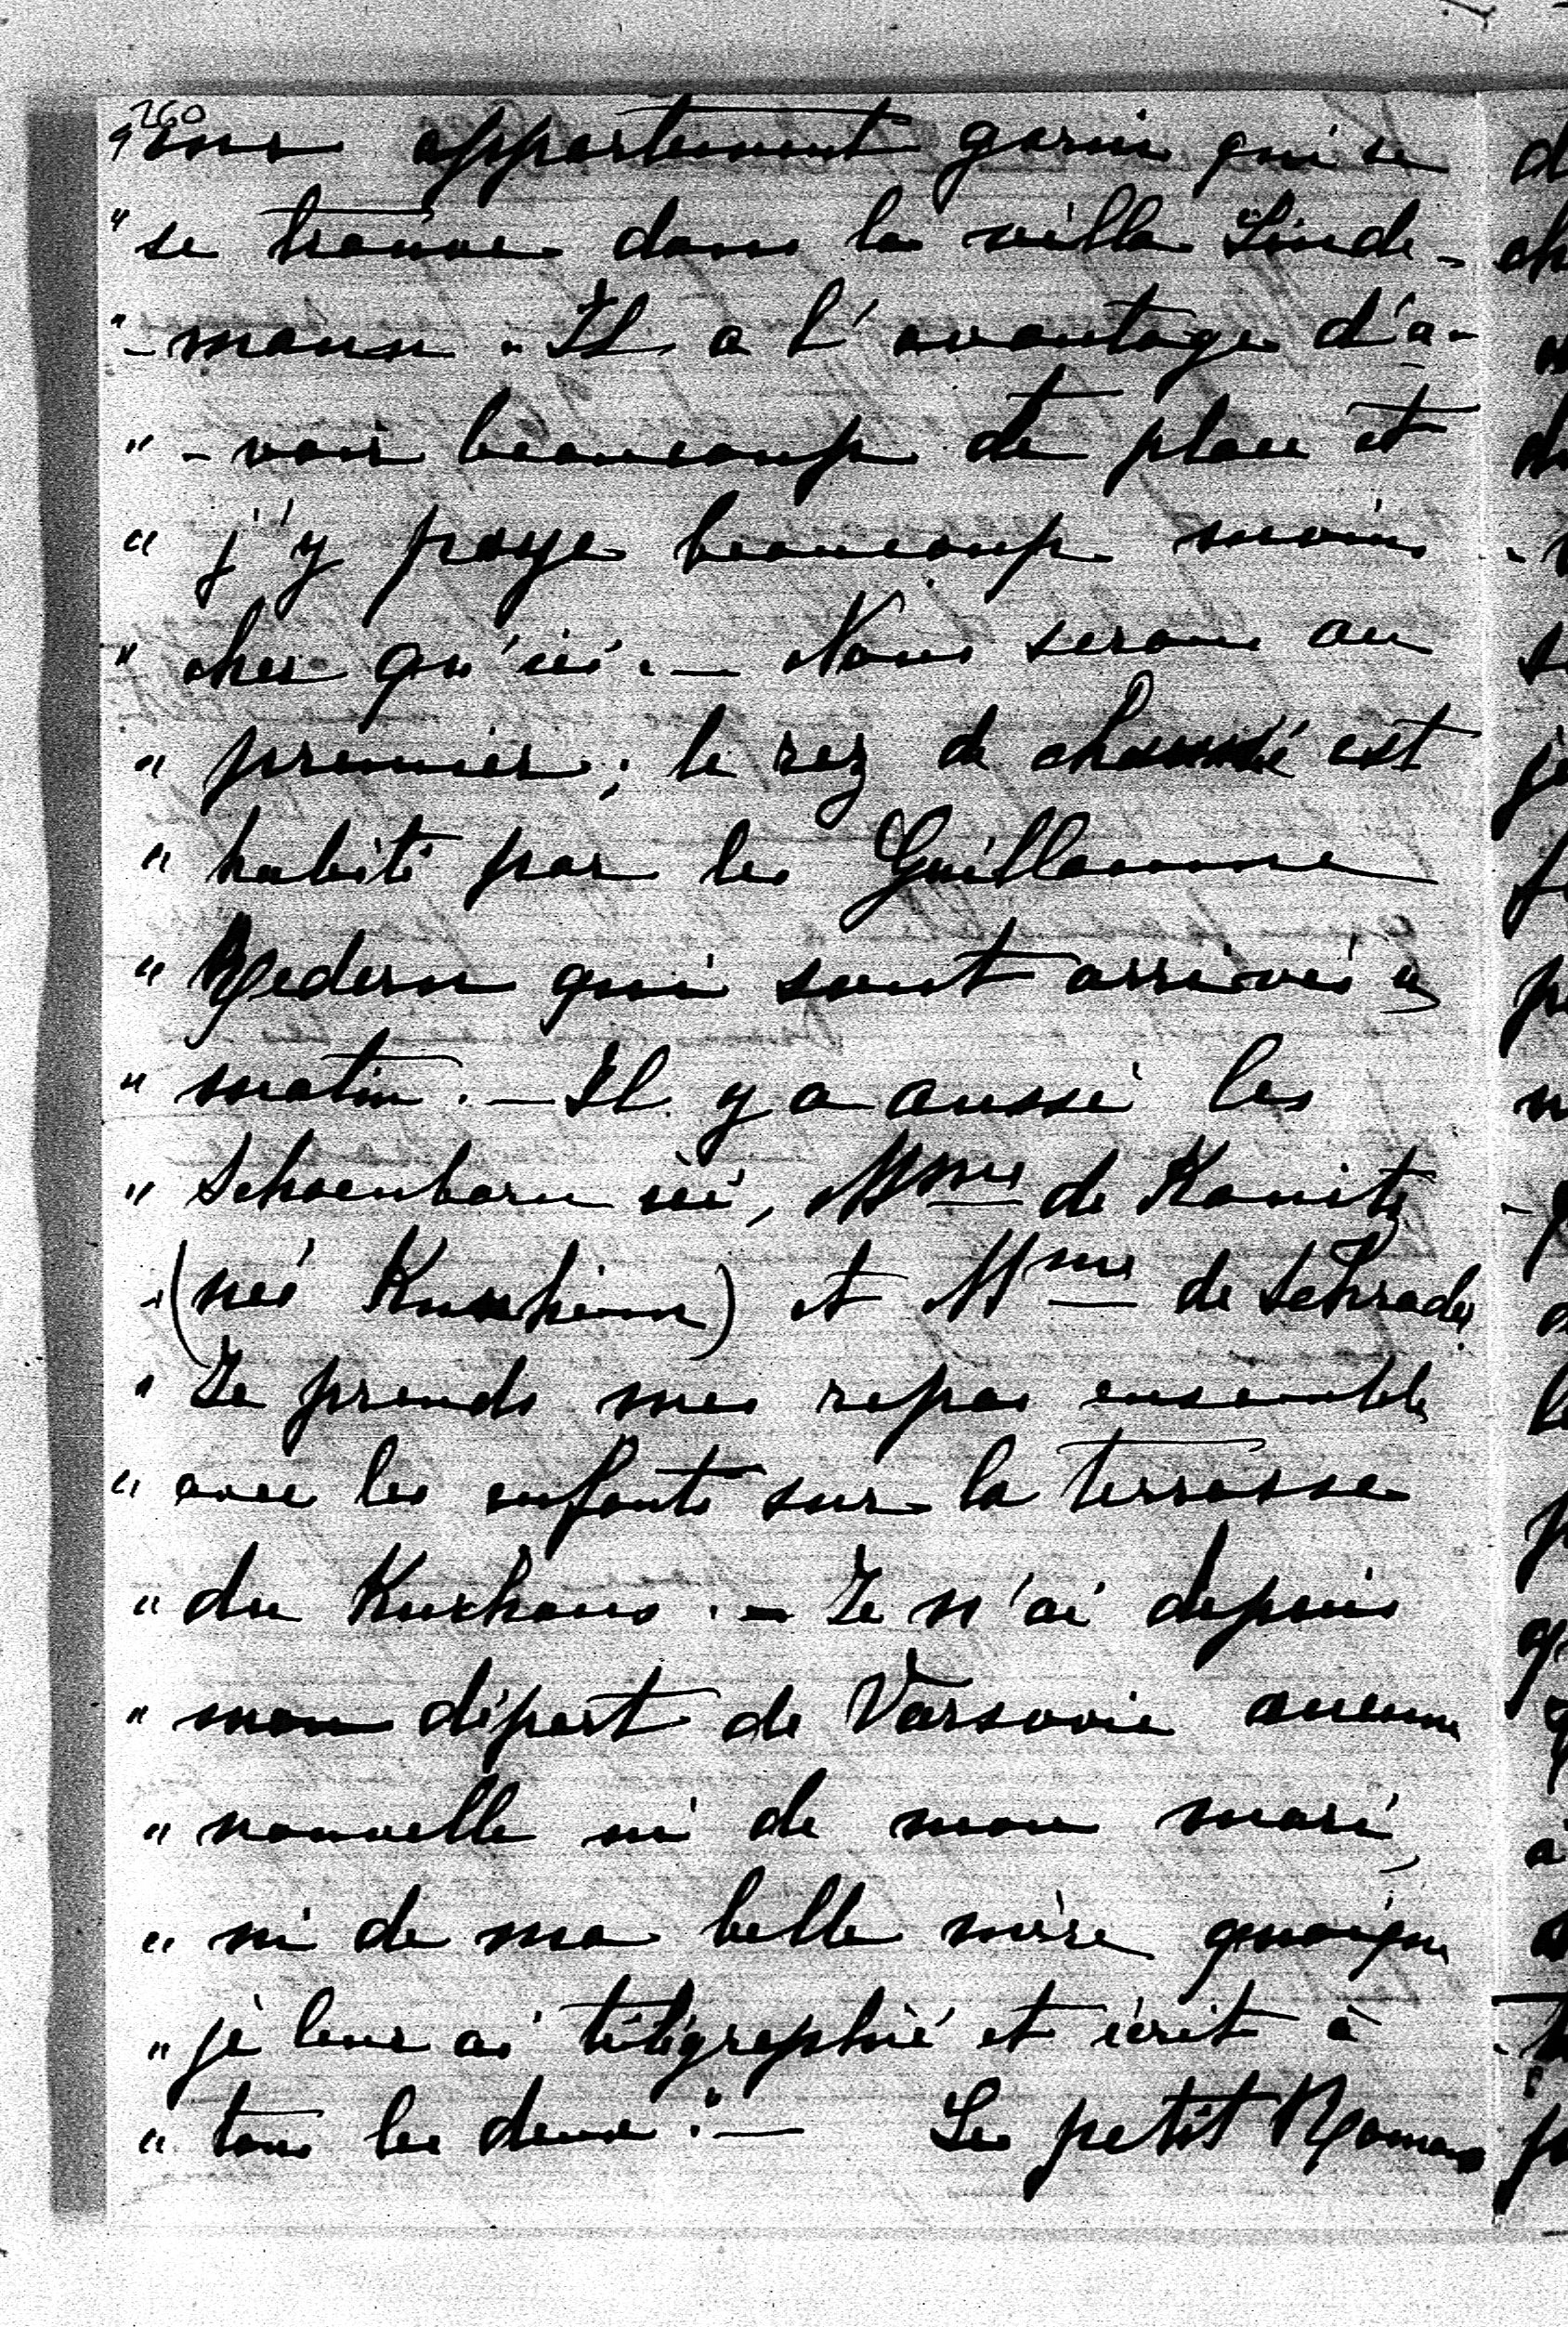 260
" une appartement garni qui se
" se trouve dans la villa Linde-
" -mann. Il a l'avantage d'a-
" -voir beaucoup de place et
" j'y paye beaucoup moins
" cher qu'ici. — Nous serons au
" premier; le rez de chaussé est
" habité par les Guillaume
" Redern qui sont arrivés ce
" matin. — Il y a aussi les
" Schoenborn ici, Mme de Kanitz
" (née Kunheim) et Mme de Schrader.
" Je prends mes repas ensemble
" avec les enfants sur la terrasse
" du Kurhaus. — Je n'ai depuis
" mon départ de Varsovie aucune
" nouvelle ni de mon mari,
" ni de ma belle mère quoique
" je leur ai télégraphié et écrit à
" tous les deux. — Le petit Roman